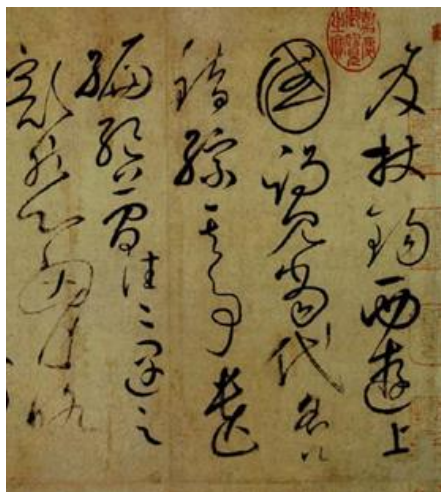 遂杖錫西遊上
國謁見當代名公
錯綜其事遺
編絕簡往〻遇之
豁然心胸略